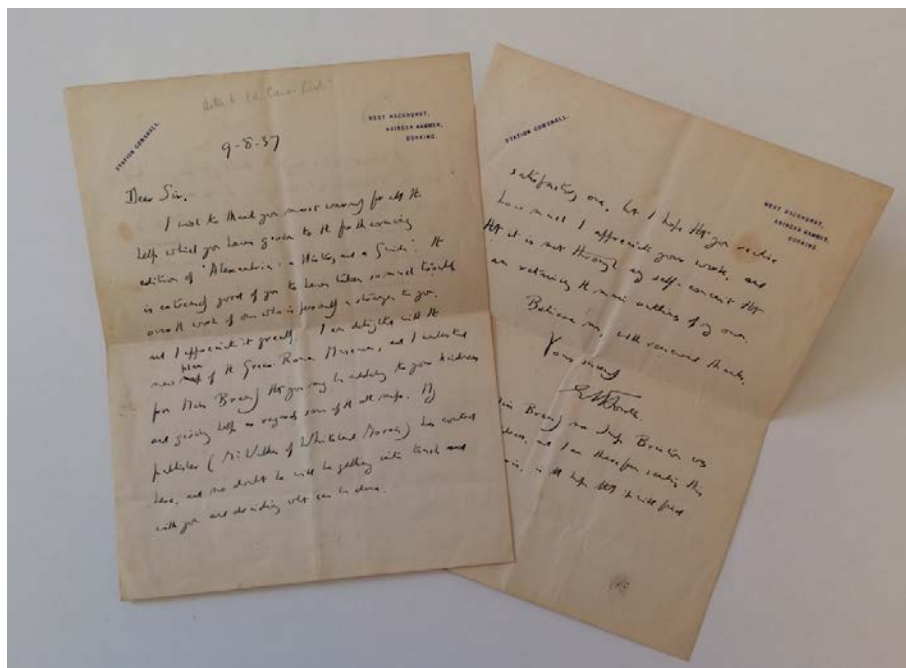 STATION GOMSHALL.
WEST HACKHURST,
ABINGER HAMMER,
DORKING.
9-8-37
Dear Sir,
I wish to thank you most warmly for all the
help which you have given to the forthcoming
edition of "Alexandria: a History and a Guide". It
is extremely good of you to have taken so much trouble
over the work of one who is personally a stranger to you,
and I appreciate it greatly. I am delighted with the
new plan of the Greco-Roman Museum, and I understand
from that you may be adding to your kindness
and giving help as regards some of the other maps. My
publisher (Mr of Whitehead Morris) has
here, and no doubt he will be getting into touch
with you and deciding what can be done.
STATION GOMSHALL.
WEST HACKHURST,
ABINGER HAMMER,
DORKING.
satisfactory one, but I hope that you realise
how much I appreciate your work, and
that it is not through any self-conceit that I
am retaining the main outlines of my own.
Believe me, with renewed thanks,
Yours sincerely
EMForster
no Judge Brinton was
and I am therefore sending this
in the hope that it will find